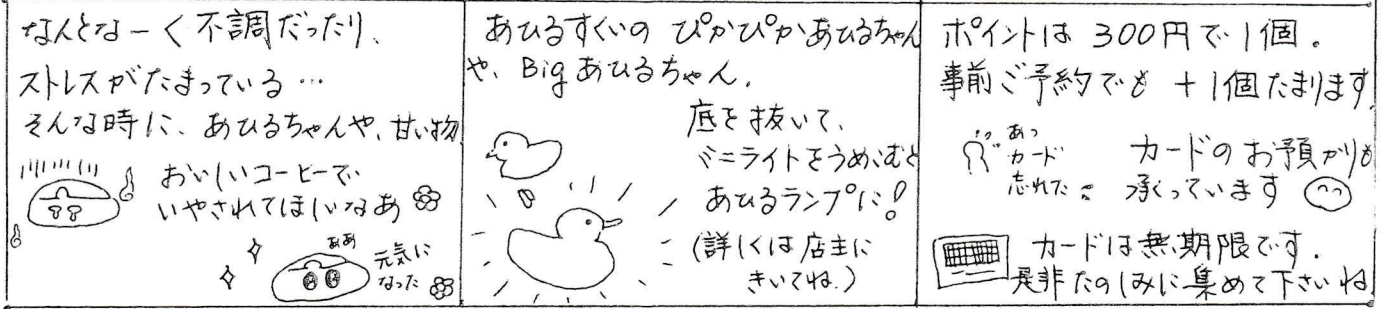 なんとなーく不調だったり、
ストレスがたまっている…
そんな時に、あひるちゃんや、甘い物
おいしいコーヒーで、
いやされてほしいなあ
ああ
元気に
なった
あひるすくいの ぴかぴかあひるちゃん
や、Bigあひるちゃん。
底を抜いて、
ミニライトをうめこむと
あひるランプに!
(詳しくは店主に
きいてね。)
ポイントは 300円で1個。
事前ご予約でも +1個たまります。
あっ
カード
忘れた
カードのお預かりも
承っています
カードは無期限です。
是非たのしみに集めて下さいね